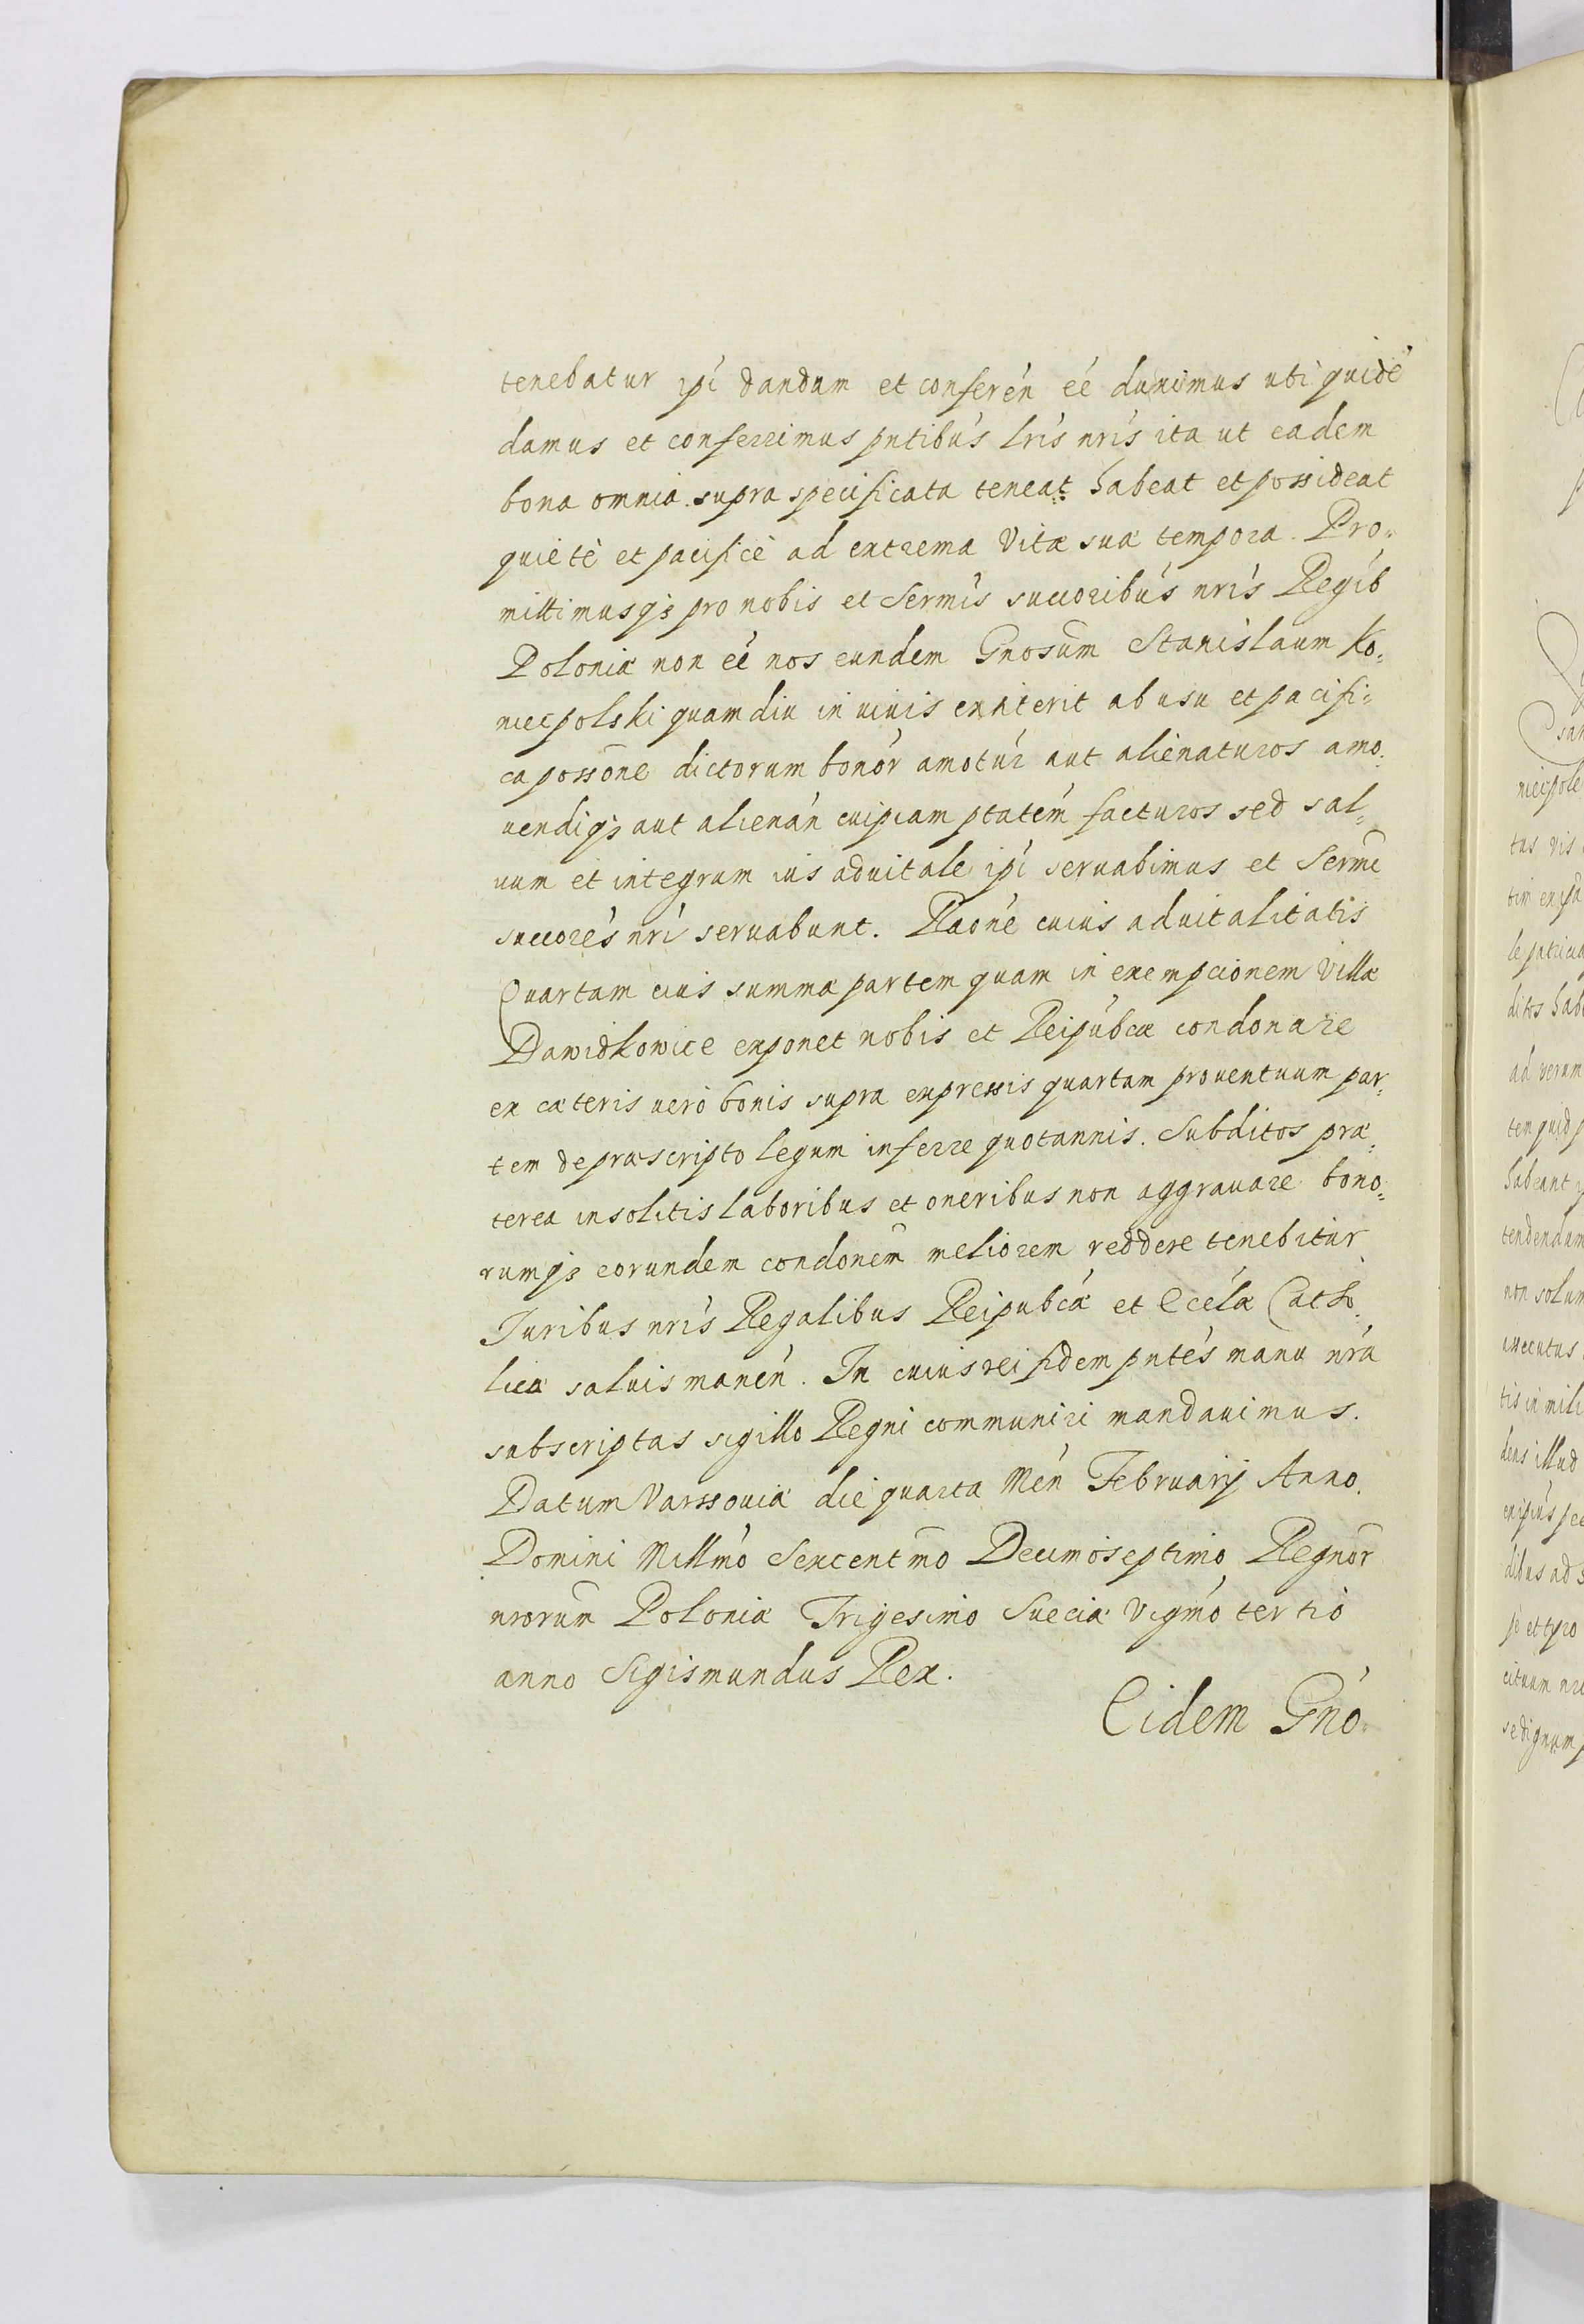 tenebatur ipi dandum et conferen ee duximus uti quide
damus et conferrimus pntibus lris nris ita ut eadem
bona omnia supra specificata teneat habeat et possideat
quiete et pacifice ad extrema Vitæ suæ tempora. Pro=
mittimusq3 pro nobis et Sermis succoribus nris Regib
Poloniæ non ee nos eundem Gnosum Stanislaum Ko=
niecpolski quamdiu in uiuis exititerit ab usu et pacifi=
ca possone dictorum bonor amotur aut alienaturos amo=
uendiq3 aut alienan cuipiam ptatem facturos sed sal=
uum et integrum ius aduitale ipi seruabimus et Sermi
succores nri seruabunt. Raone cuius aduitalitatis
Quartam eius summæ partem quam in exempcionem Villæ
Dawidkowice exponet nobis et Reipubcæ condonare
ex cæteris uero bonis supra expressis quartam prouentuum par=
tem de præscripto legum inferre quotannis. Subditos præ=
terea insolitis laboribus et oneribus non aggrauare bono=
rumq3 eorundem condonem meliorem reddere tenebitur
Iuribus nris Regalibus Reipubcæ et Eccelæ Catho=
licæ saluis manen. In cuius rei fidem pntes manu nra
subscriptas sigillo Regni communiri mandauimus.
Datum Varssouiæ die quarta Men Februarij Anno
Domini Millmo Sexcentmo Decimoseptimo Regnor
nrorum Poloniæ Trigesimo Sueciæ Vigmo tertio
anno Sigismundus Rex.
Eidem Gno=
Co
p
san
niecpole
tus vis
tim ex pa
le patricia
ditos hab
ad verum
tem quid p
habeant
tendendam
non solum
assecutus
tis in mili
dens illud
dibus ad s
se et pro
cituum nr
se dignum p